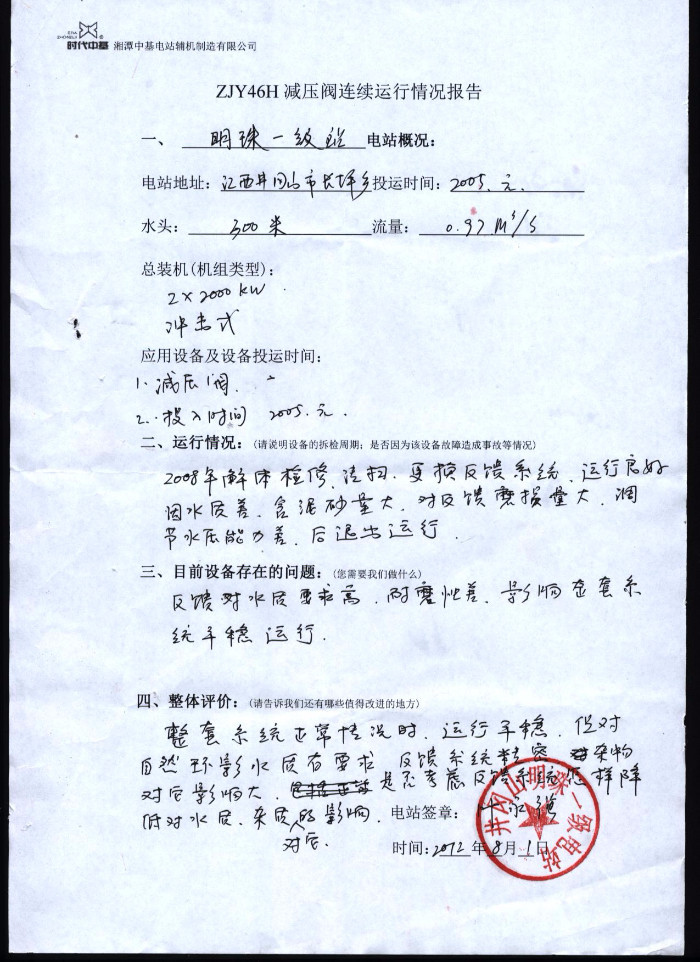 ERA
ZHONGJI
时代中基 湘潭中基电站辅机制造有限公司
ZJY46H 减压阀连续运行情况报告
一、 明珠一级站 电站概况：
电站地址：江西井冈山市长坪乡投运时间：2005.元.
水头： 300米 流量： 0.97 M³/S
总装机(机组类型)：
2×2000 KW
冲击式
应用设备及设备投运时间：
1. 减压阀.
2. 投入时间 2005.元.
二、运行情况：(请说明设备的拆检周期；是否因为该设备故障造成事故等情况)
2008年解体检修、清扫、更换反馈系统、运行良好
因水质差、含泥砂量大、对反馈磨损量大、调
节水压能力差、后退出运行.
三、目前设备存在的问题：(您需要我们做什么)
反馈对水质要求高、耐磨性差、影响整套系
统平稳运行.
四、整体评价：(请告诉我们还有哪些值得改进的地方)
整套系统正常情况时、运行平稳、但对
自然环影水质有要求、反馈系统精密 对杂物
对它影响大、是否考虑反馈系统怎样降
低对水质、杂质的影响. 电站签章：
对它.
时间：2012年8月1日
井冈山明珠一级电站